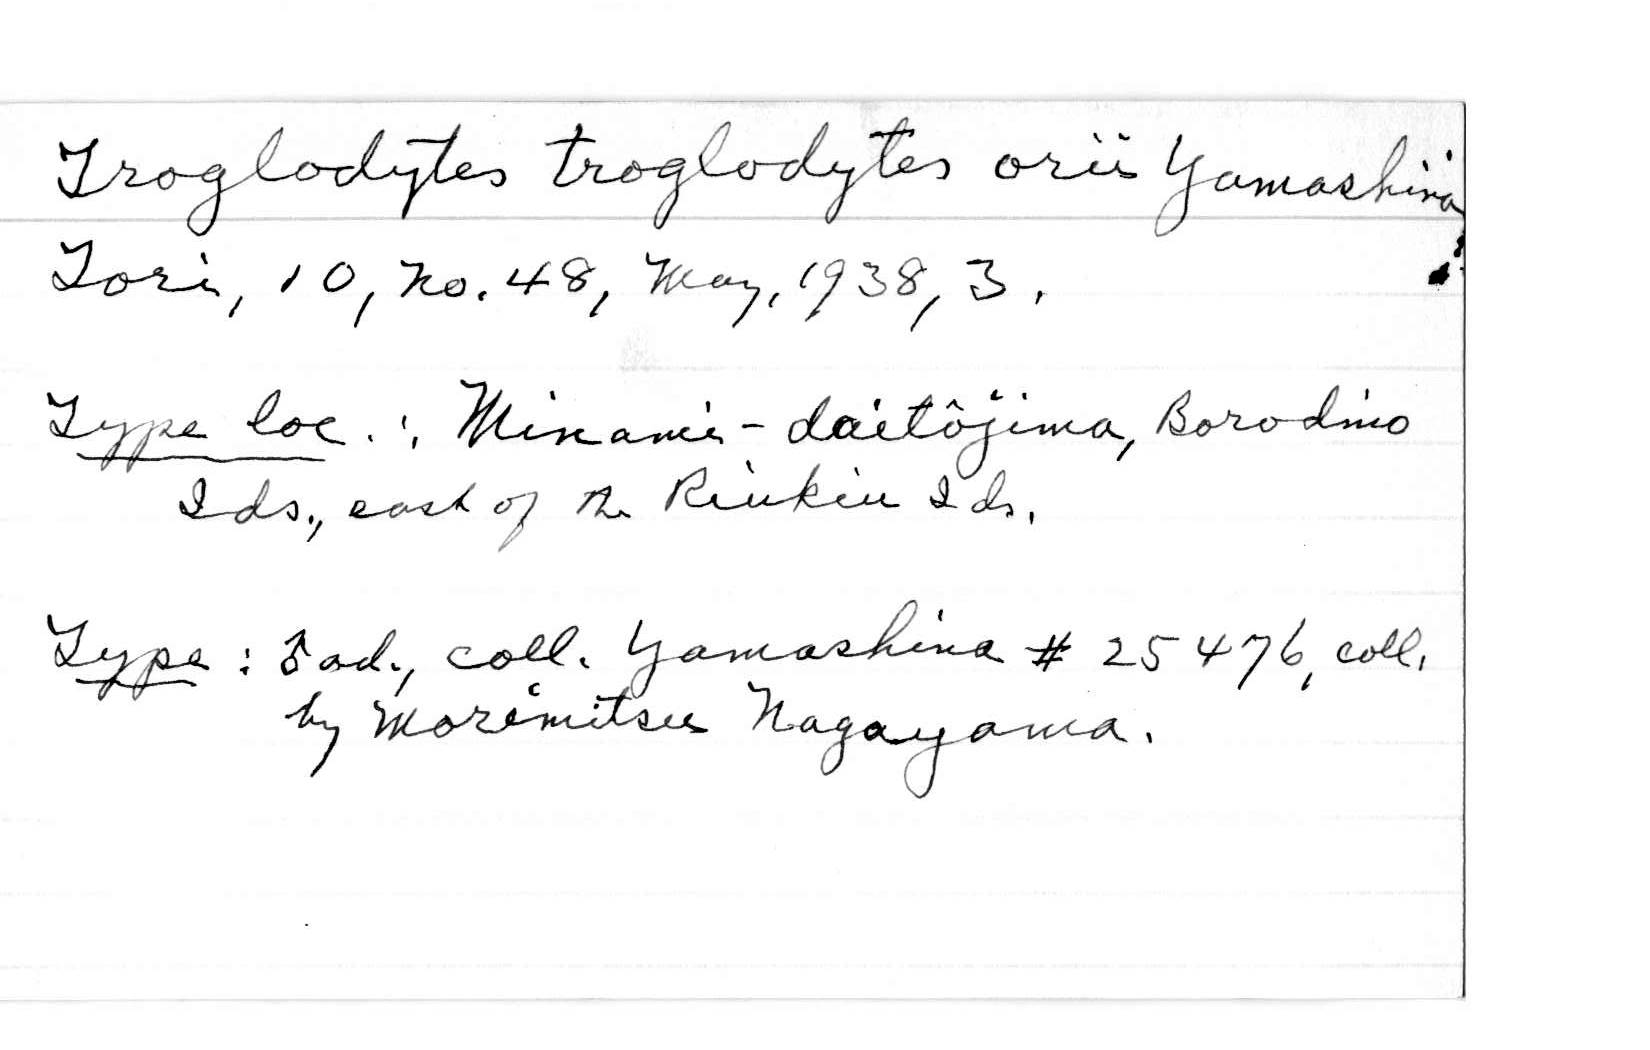 Troglodytes troglodytes orii Yamashina
Tori, 10, no. 48, May, 1938, 3.
Type loc.: Minami-daitôjima, Borodino
Ids., east of the Riukiu Ids.
Type: ♂ ad., coll. Yamashina # 25476, coll.
by Morimitsu Nagayama.